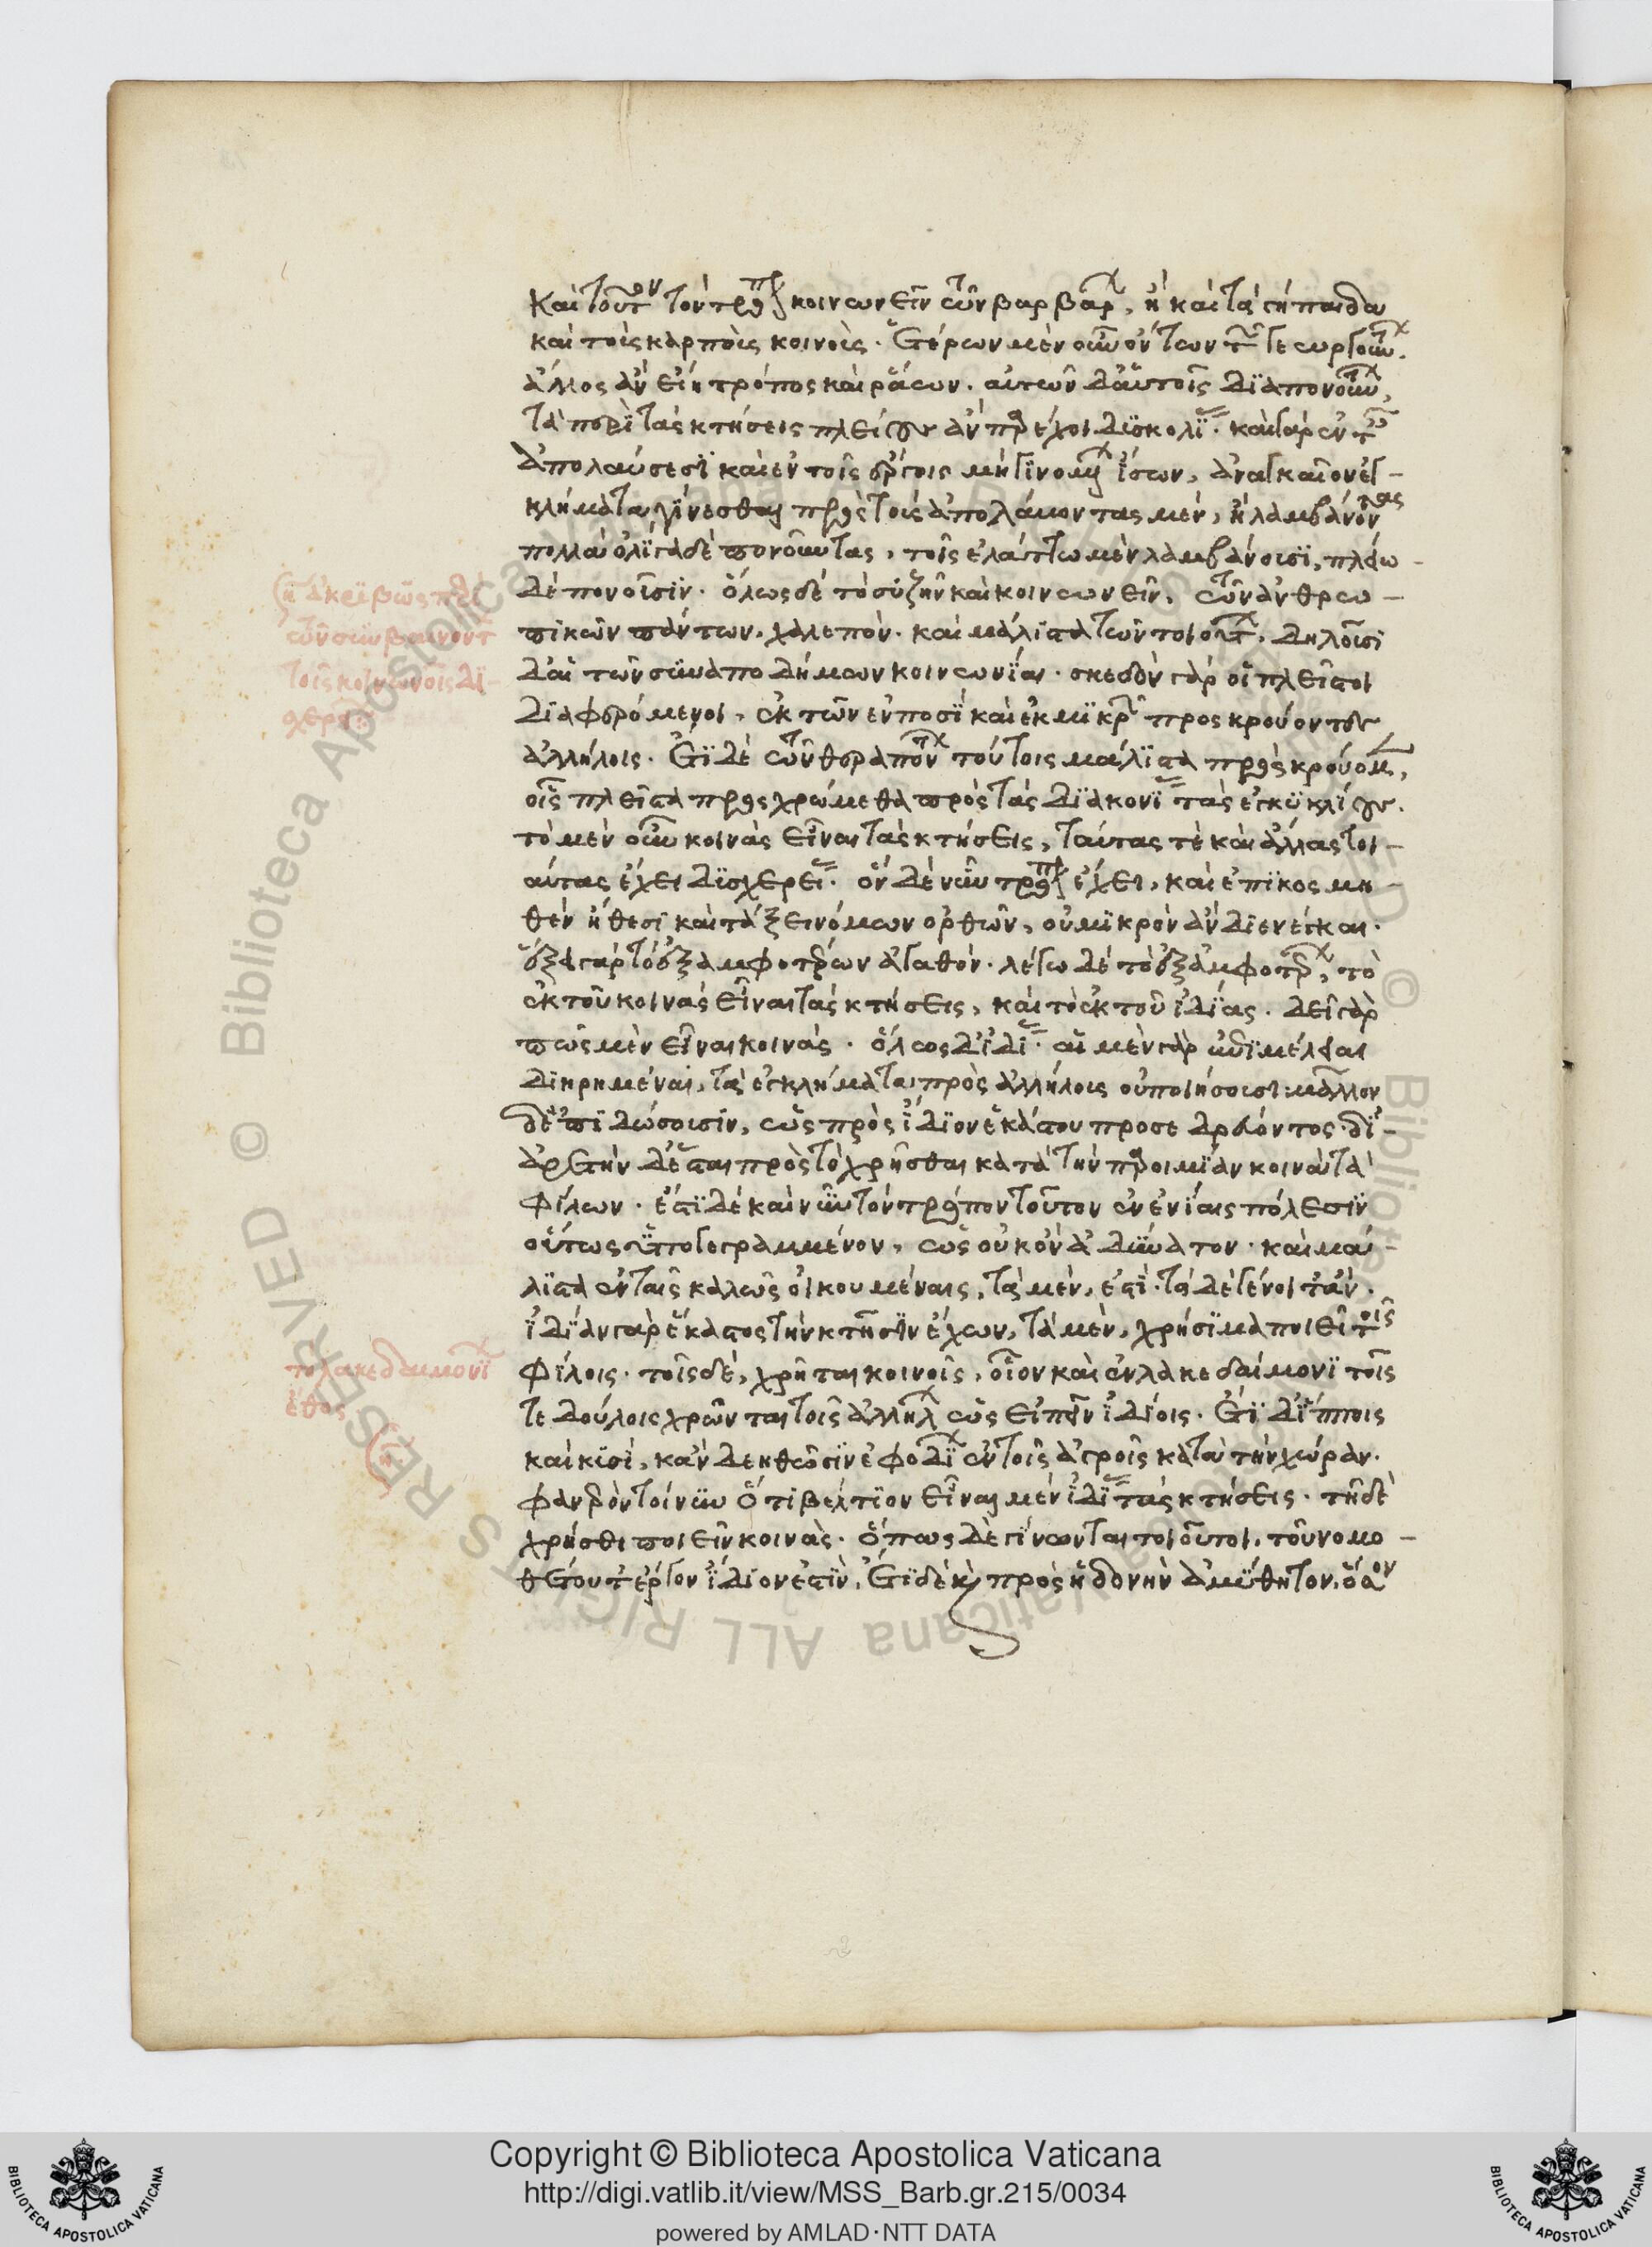 καὶ τοῦτον τὸν τρόπον κοινωνεῖν τῶν βαρβάρων, ἢ καὶ τὰ γήπεδα
καὶ τοὺς καρποὺς κοινούς. ἑτέρων μὲν οὖν ὄντων τῶν γεωργούντων,
ἄλλος ἂν εἴη τρόπος καὶ ῥάων. αὐτῶν δ' αὑτοῖς διαπονούντων,
τὰ περὶ τὰς κτήσεις πλείους ἂν παρέχοι δυσκολίας. καὶ γὰρ ἐν ταῖς
ἀπολαύσεσι καὶ ἐν τοῖς ἔργοις μὴ γινομένων ἴσων, ἀναγκαῖον ἐγ-
κλήματα γίνεσθαι πρὸς τοὺς ἀπολάβοντας μὲν, ἢ λαμβάνοντας
πολλὰ ὀλίγα δὲ πονοῦντας, τοῖς ἐλάττω μὲν λαμβάνουσι, πλείω
δὲ πονοῦσιν. ὅλως δὲ τὸ συζῆν καὶ κοινωνεῖν, τῶν ἀνθρω-
πικῶν πάντων, χαλεπὸν. καὶ μάλιστα τῶν τοιούτων. δηλοῦσι
δ' αἱ τῶν συναποδήμων κοινωνίαι. σχεδὸν γὰρ οἱ πλεῖστοι
διαφερόμενοι, ἐκ τῶν ἐν ποσὶ καὶ ἐκ μικρῶν προσκρούοντες
ἀλλήλοις. ἔτι δὲ τῶν θεραπόντων τούτοις μάλιστα προσκρούομεν,
οἷς πλεῖστα προσχρώμεθα πρὸς τὰς διακονίας τὰς ἐγκυκλίους.
τὸ μὲν οὖν κοινὰς εἶναι τὰς κτήσεις, ταύτας τε καὶ ἄλλας τοι-
αύτας ἔχει δυσχερείας. ὃν δὲ νῦν τρόπον ἔχει, καὶ ἐπικοσμη-
θὲν ἤθεσι καὶ τάξει νόμων ὀρθῶν, οὐ μικρὸν ἂν διενέγκαι.
ἕξει γὰρ τὸ ἐξ ἀμφοτέρων ἀγαθόν. λέγω δὲ τὸ ἐξ ἀμφοτέρων, τὸ
ἐκ τοῦ κοινὰς εἶναι τὰς κτήσεις, καὶ τὸ ἐκ τοῦ ἰδίας. δεῖ γὰρ
πῶς μὲν εἶναι κοινάς. ὅλως δ' ἰδίας. αἱ μὲν γὰρ ἐπιμέλειαι
διηρημέναι, τὰ ἐγκλήματα πρὸς ἀλλήλους οὐ ποιήσουσι: μᾶλλον
δὲ ἐπιδώσουσιν, ὡς πρὸς ἴδιον ἑκάστου προσεδρεύοντος. δι'
ἀρετὴν δὲ ἔσται πρὸς τὸ χρῆσθαι κατὰ τὴν παροιμίαν κοινὰ τὰ
φίλων. ἔστι δὲ καὶ νῦν τὸν τρόπον τοῦτον ἐν ἐνίαις πόλεσιν
οὕτως ὑπογεγραμμένον, ὡς οὐκ ὂν ἀδύνατον. καὶ μά-
λιστα ἐν ταῖς καλῶς οἰκουμέναις, τὰ μὲν, ἐστί. τὰ δὲ γένοιτ' ἄν.
ἰδίαν γὰρ ἕκαστος τὴν κτῆσιν ἔχων, τὰ μὲν, χρήσιμα ποιεῖ τοῖς
φίλοις. τοῖς δὲ, χρῆται κοινοῖς, οἷον καὶ ἐν λακεδαίμονι τοῖς
τε δούλοις χρῶνται τοῖς ἀλλήλων ὡς εἰπεῖν ἰδίοις. ἔτι δ' ἵπποις
καὶ κυσί, κἂν δεηθῶσιν ἐφοδίων ἐν τοῖς ἀγροῖς κατὰ τὴν χώραν.
φανερὸν τοίνυν ὅτι βέλτιον εἶναι μὲν ἰδίας τὰς κτήσεις. τῇ δὲ
χρήσει ποιεῖν κοινὰς. ὅπως δὲ γίνωνται τοιοῦτοι, τοῦ νομο-
θέτου τ' ἔργον ἴδιον ἐστὶν. ἔτι δὲ καὶ πρὸς ἡδονὴν ἀμύθητον, ὅσον
ἀκριβῶς περὶ
τῶν συμβαινόντων
τοῖς κοινωνοῖς δυ-
χερῶν
το λακεδαιμονίων
ἔθος
Copyright © Biblioteca Apostolica Vaticana
http://digi.vatlib.it/view/MSS_Barb.gr.215/0034
powered by AMLAD·NTT DATA
BIBLIOTECA APOSTOLICA VATICANA
BIBLIOTECA APOSTOLICA VATICANA
© Biblioteca Apostolica Vaticana ALL RIGHTS RESERVED